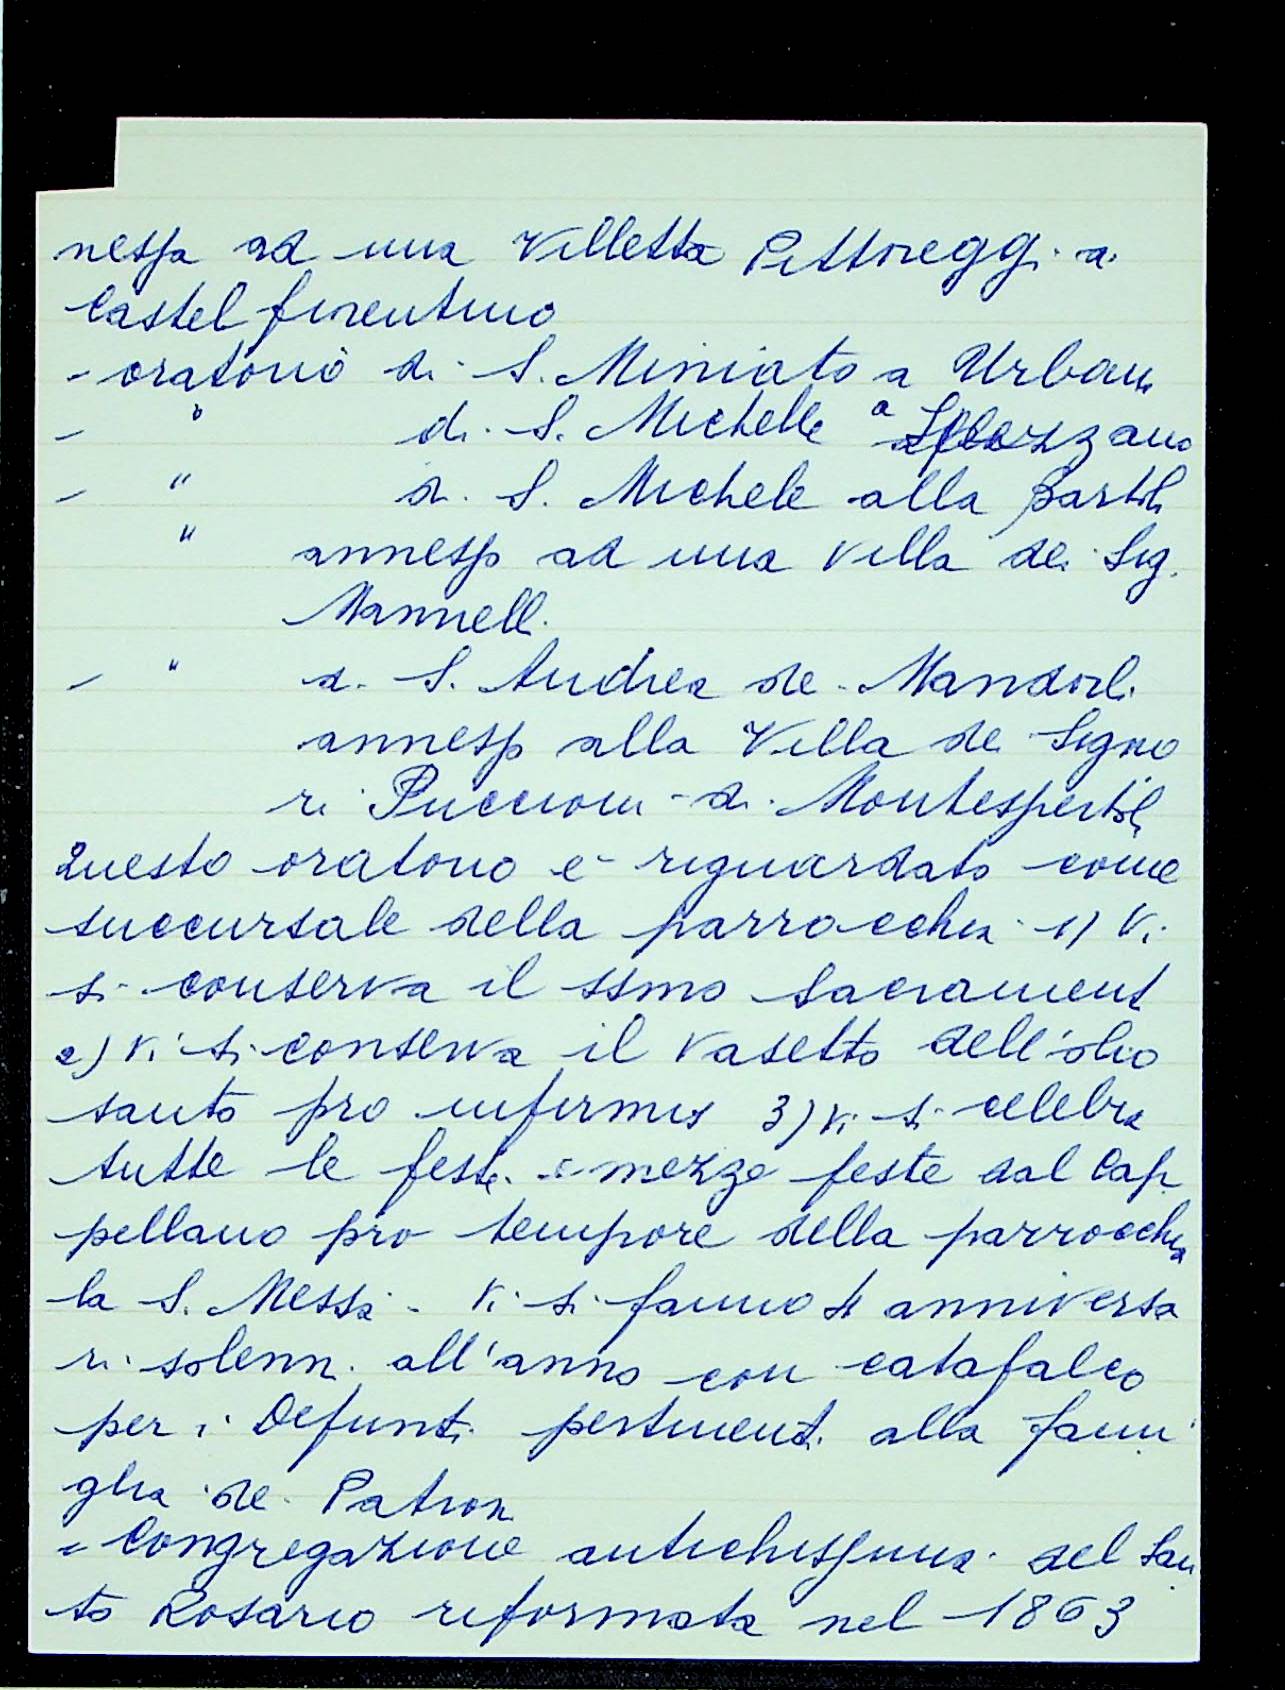 nessa ad una Villetta Pittoreggi a
Castel fiorentino
- oratorio di S. Miniato a Urbana
- " di S. Michele a
- " di S. Michele alla
" annesso ad una villa dei Sig.
Mannelli
- " di S. Andrea dei Mandorli
annesso alla Villa dei Signo
ri Puccioni di Montespertoli
Questo oratorio è riguardato come
succursale della parrocchia 1) Vi
si conserva il SSmo Sacramento
2) Vi si conserva il vasetto dell'olio
santo pro infirmis 3) Vi si celebra
tutte le feste e mezze feste dal Cap
pellano pro tempore della parrocchia
la S. Messa. Vi si fanno 4 anniversa
ri solenni all'anno con catafalco
per i Defunti pertinenti alla fami
glia dei Patroni
= Congregazione antichissima del San
to Rosario riformata nel 1863